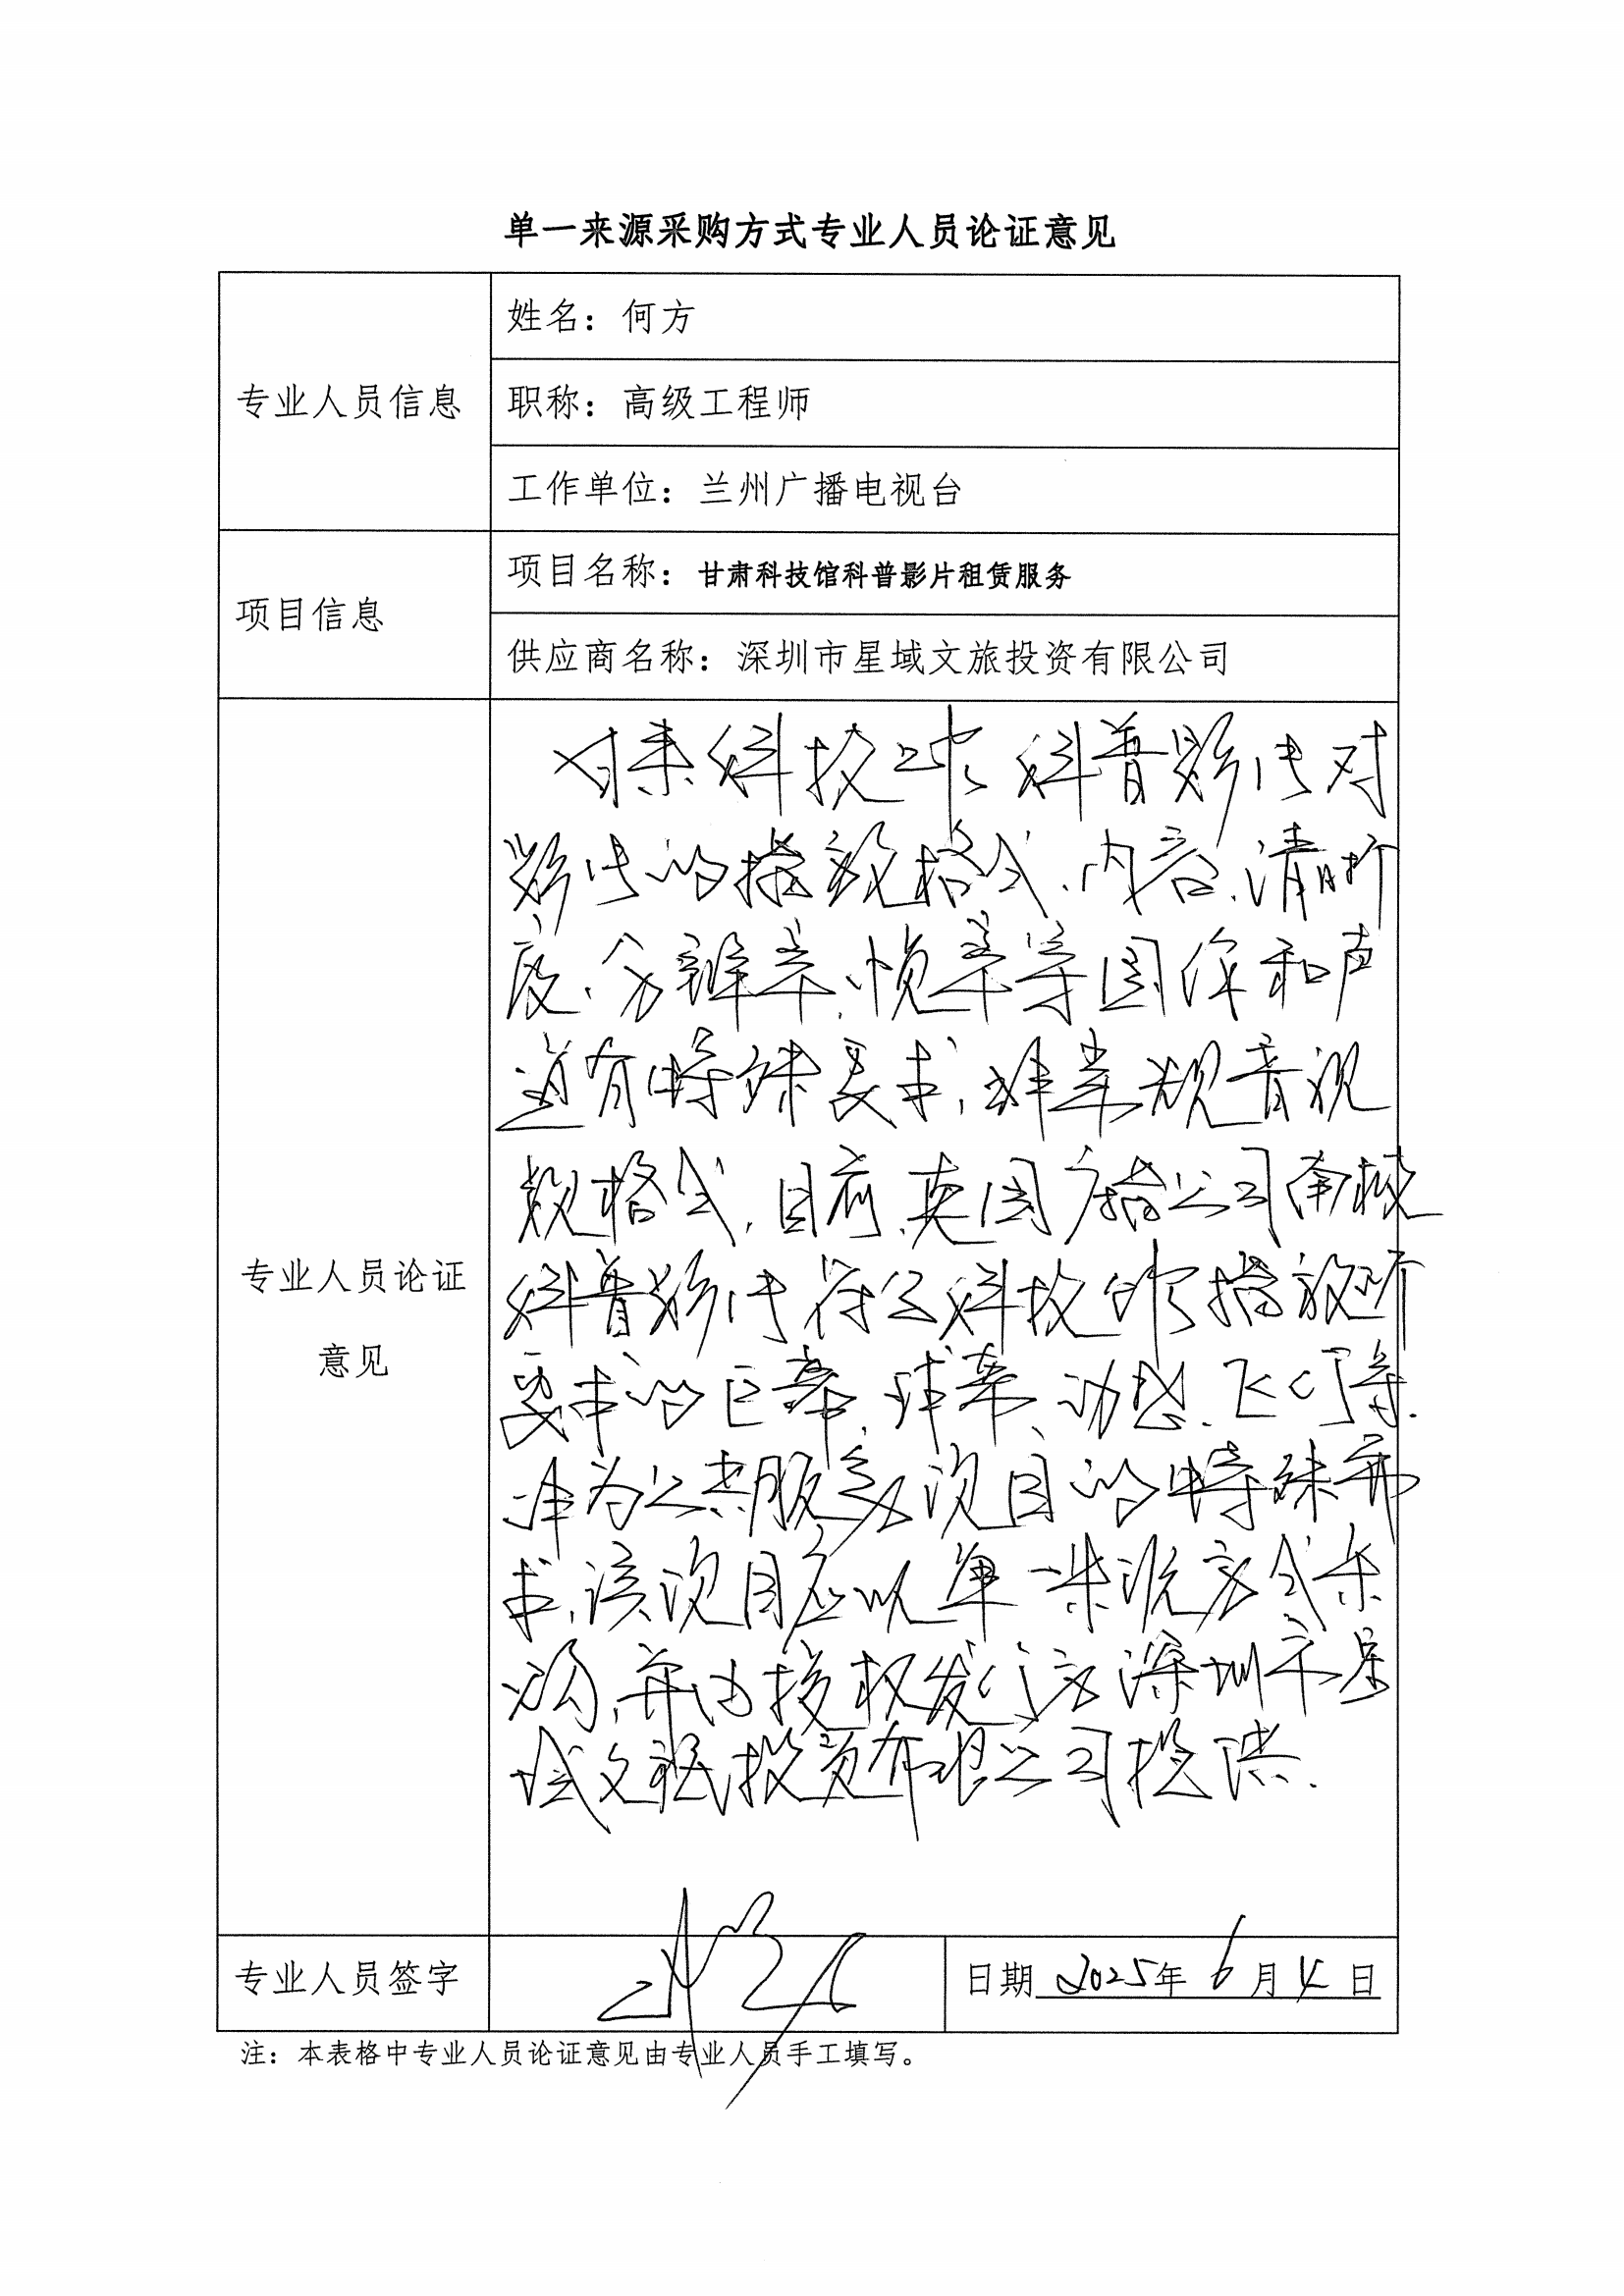 单一来源采购方式专业人员论证意见
专业人员信息
姓名：何方
职称：高级工程师
工作单位：兰州广播电视台
项目信息
项目名称：甘肃科技馆科普影片租赁服务
供应商名称：深圳市星域文旅投资有限公司
专业人员论证
意见
科技馆科普影片对
影片的播放格式、内容、清晰
度、分辨率、帧率等图像和声
道有特殊要求，非常规音视
频格式，目前，英国广播公司南极
科普影片符合科技馆播放所
要求的巨幕、球幕、动感、飞行等
作为公共服务项目的特殊需
求，该项目应以单一来源方式采
购，并由授权发行方深圳市星
域文旅投资有限公司提供.
专业人员签字
日期 2025年 6月 4日
注：本表格中专业人员论证意见由专业人员手工填写。